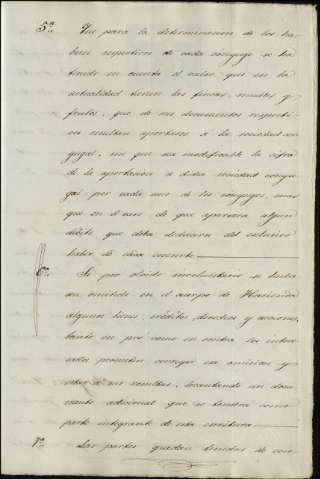 5ª Que para la determinacion de los ha-
beres respectivos de cada cónyuge se ha
tenido en cuenta el valor que en la
actualidad tienen las fincas, muebles y
frutos, que de sus documentos respecti-
vos resultan aportados a la sociedad con
yugal, sin que sea modificable la cifra
de la aportacion a dicha sociedad conyu
gal por cada uno de los cónyuges, mas
que en el caso de que apareciera algun
débito que deba deducirse del
haber de dicho
6ª Si por olvido involuntario se hubie
sen omitido en el cuerpo de Hacienda
algunos bienes, créditos, derechos y acciones,
tanto en pró como en contra los intere
sados prometen corregir esa omision y
de sus resultas, levantando un docu
mento adicional que se tendrá como
parte integrante de esta escritura.
7ª Las partes quedan tenidas de